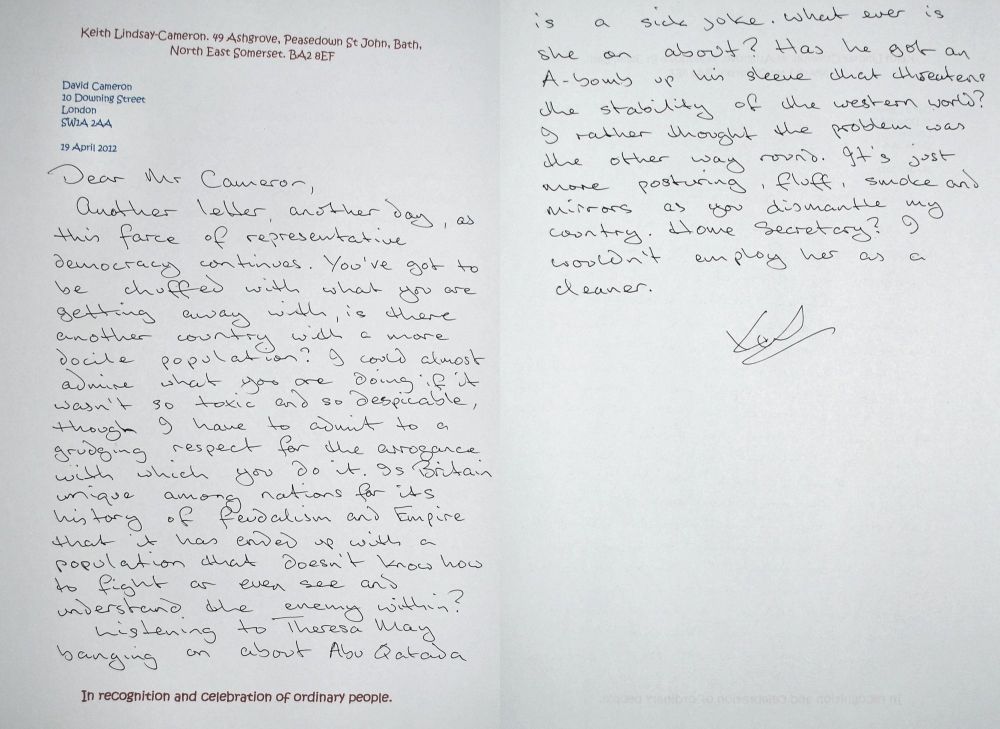 Keith Lindsay-Cameron. 49 Ashgrove, Peasedown St John, Bath,
North East Somerset. BA2 8EF
David Cameron
10 Downing Street
London
SW1A 2AA
19 April 2012
Dear Mr Cameron,
Another letter, another day, as
this farce of representative
democracy continues. You've got to
be chuffed with what you are
getting away with, is there
another country with a more
docile population? I could almost
admire what you are doing if it
wasn't so toxic and so despicable,
though I have to admit to a
grudging respect for the arrogance
with which you do it. Is Britain
unique among nations for its
history of feudalism and Empire
that it has ended up with a
population that doesn't know how
to fight or even see and
understand the enemy within?
Listening to Theresa May
banging on about Abu Qatada
In recognition and celebration of ordinary people.
is a sick joke. What ever is
she on about? Has he got an
A-bomb up his sleeve that threatens
the stability of the western world?
I rather thought the problem was
the other way round. It's just
more posturing, fluff, smoke and
mirrors as you dismantle my
country. Home Secretary? I
wouldn't employ her as a
cleaner.